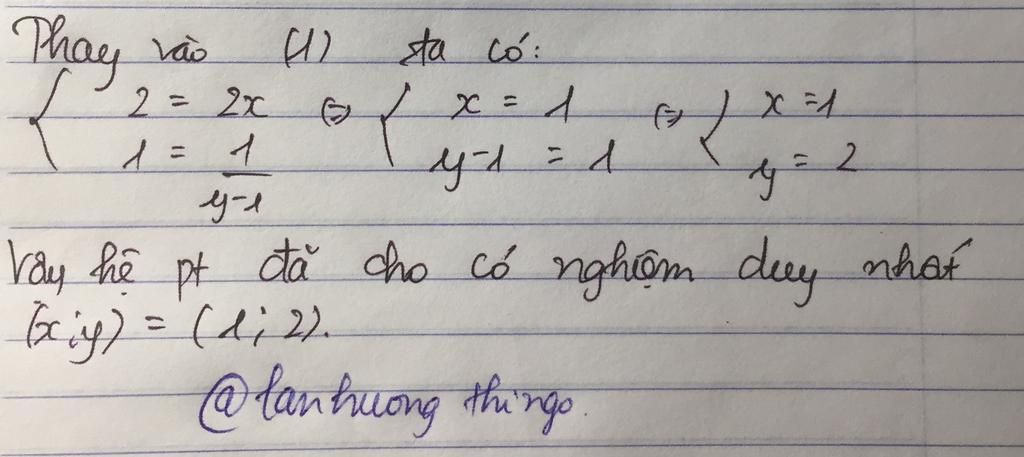 Thay vào (1) ta có:
{ 2 = 2x ⇔ { x = 1 ⇔ { x = 1
1 = 1/(y-1) y-1 = 1 y = 2
Vậy hệ pt đã cho có nghiệm duy nhất
(x;y) = (1; 2).
@lanhuong thingo.